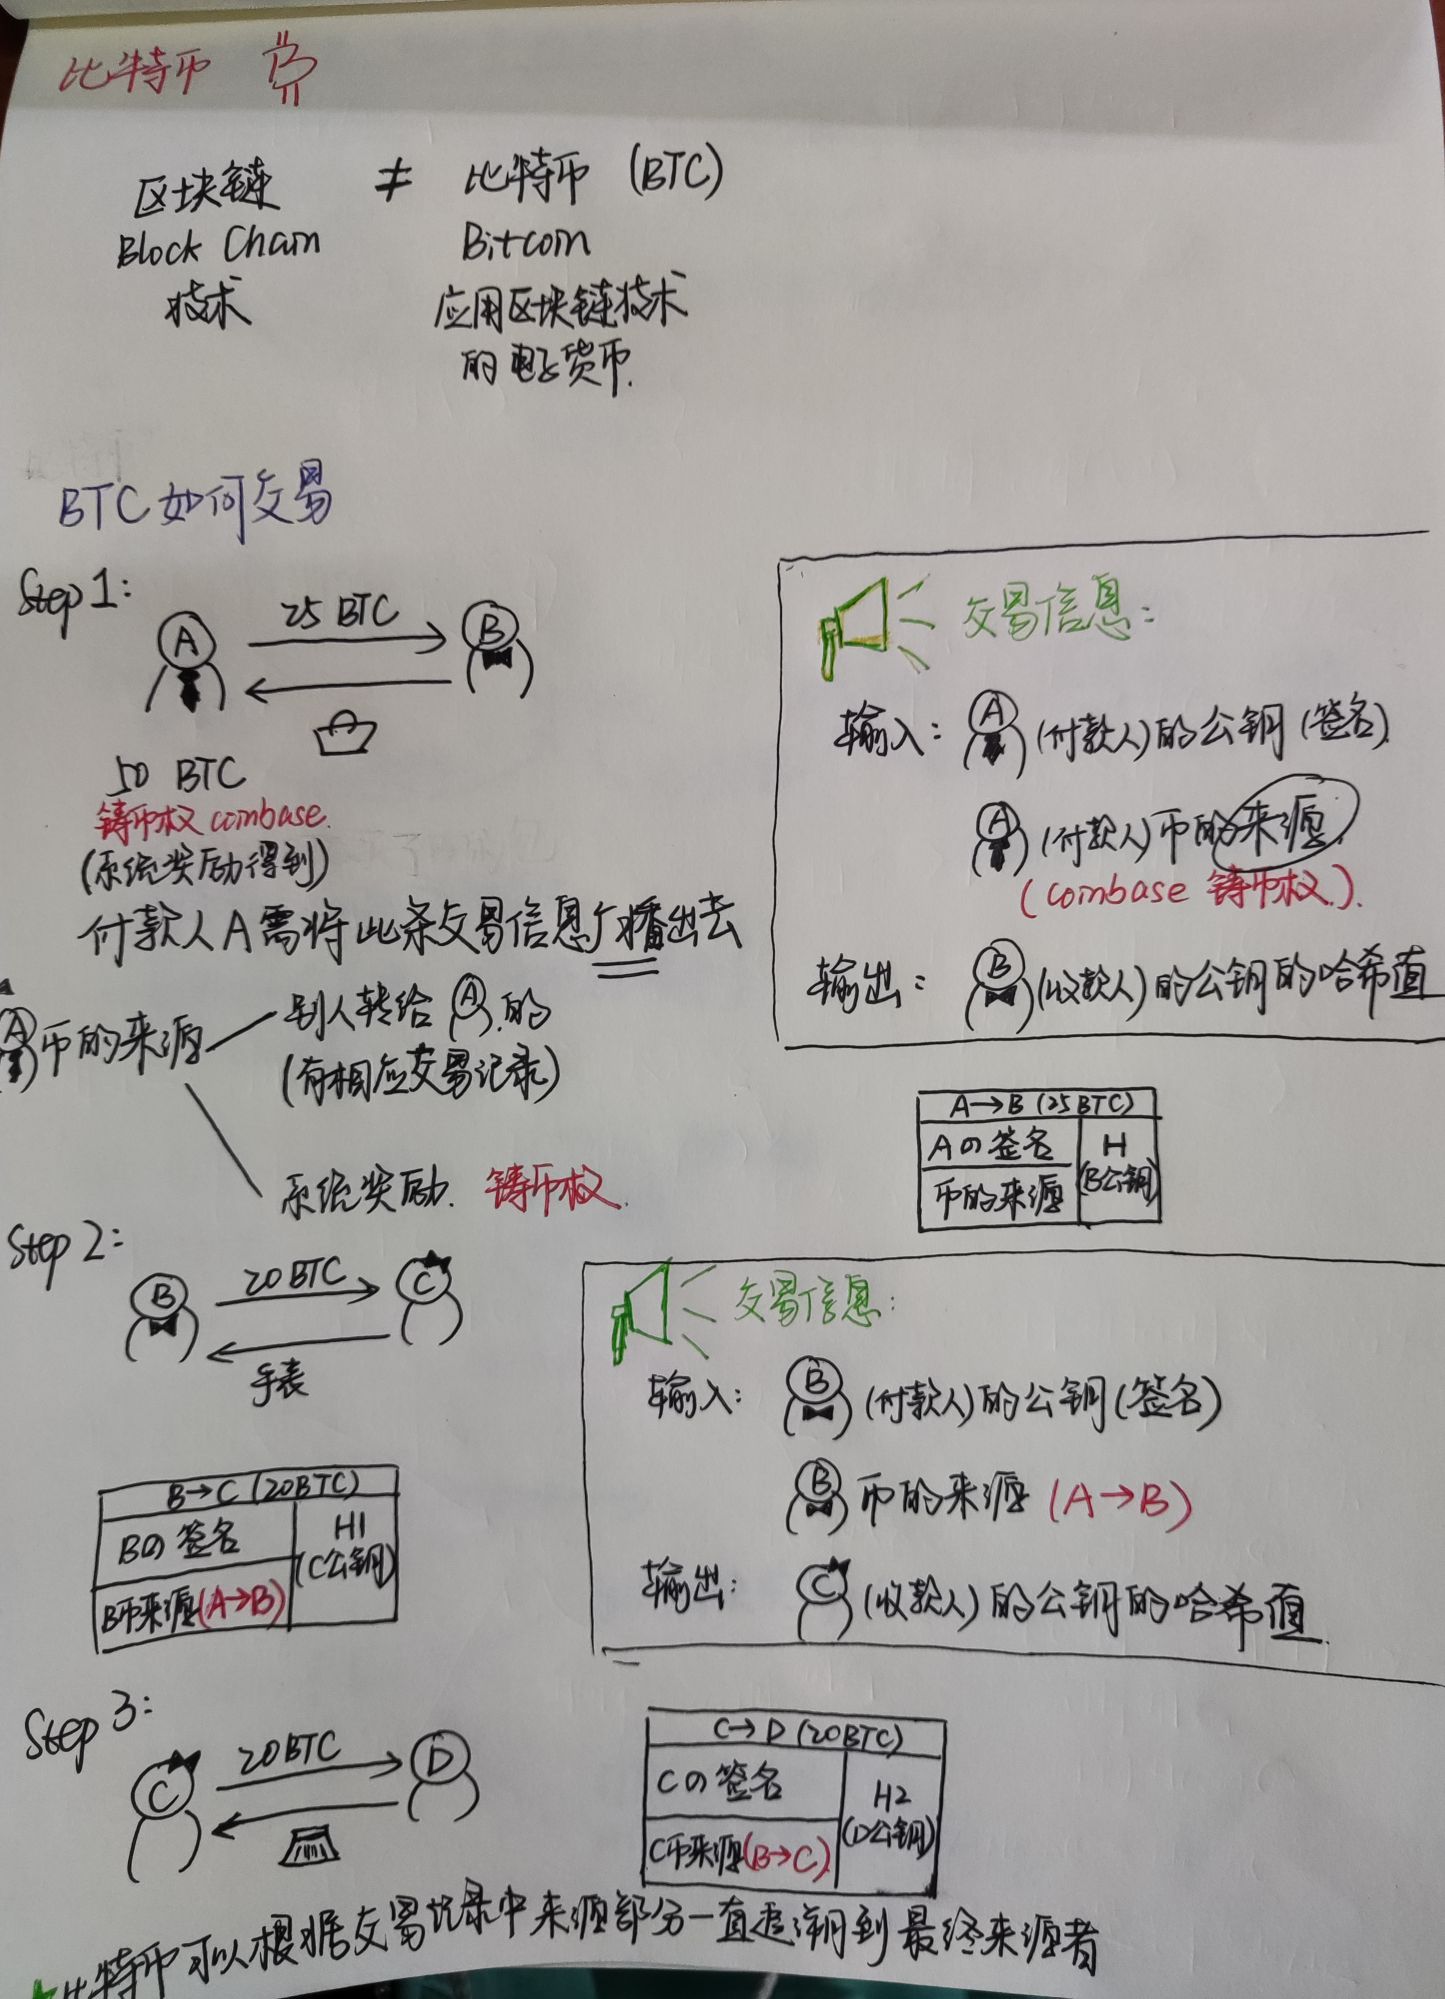 比特币 ₿
区块链 ≠ 比特币 (BTC)
Block Chain Bitcoin
技术 应用区块链技术
的电子货币.
BTC如何交易
Step 1:
A 25 BTC B
50 BTC
铸币权 coinbase.
(系统奖励得到)
付款人A需将此条交易信息广播出去
A 币的来源
别人转给 A 的
(有相应交易记录)
系统奖励. 铸币权.
交易信息:
输入: A (付款人)的公钥(签名)
A (付款人)币的来源.
(coinbase 铸币权).
输出: B (收款人)的公钥的哈希值
A→B (25BTC)
Aの签名 H
(B公钥)
币的来源
Step 2:
B 20BTC C
手表
交易信息:
输入: B (付款人)的公钥(签名)
B 币的来源 (A→B)
输出: C (收款人)的公钥的哈希值
B→C (20BTC)
Bの签名 H1
(C公钥)
B币来源(A→B)
Step 3:
C 20BTC D
C→D (20BTC)
Cの签名 H2
(D公钥)
C币来源(B→C)
比特币可以根据交易记录中来源部分一直追溯到最终来源者